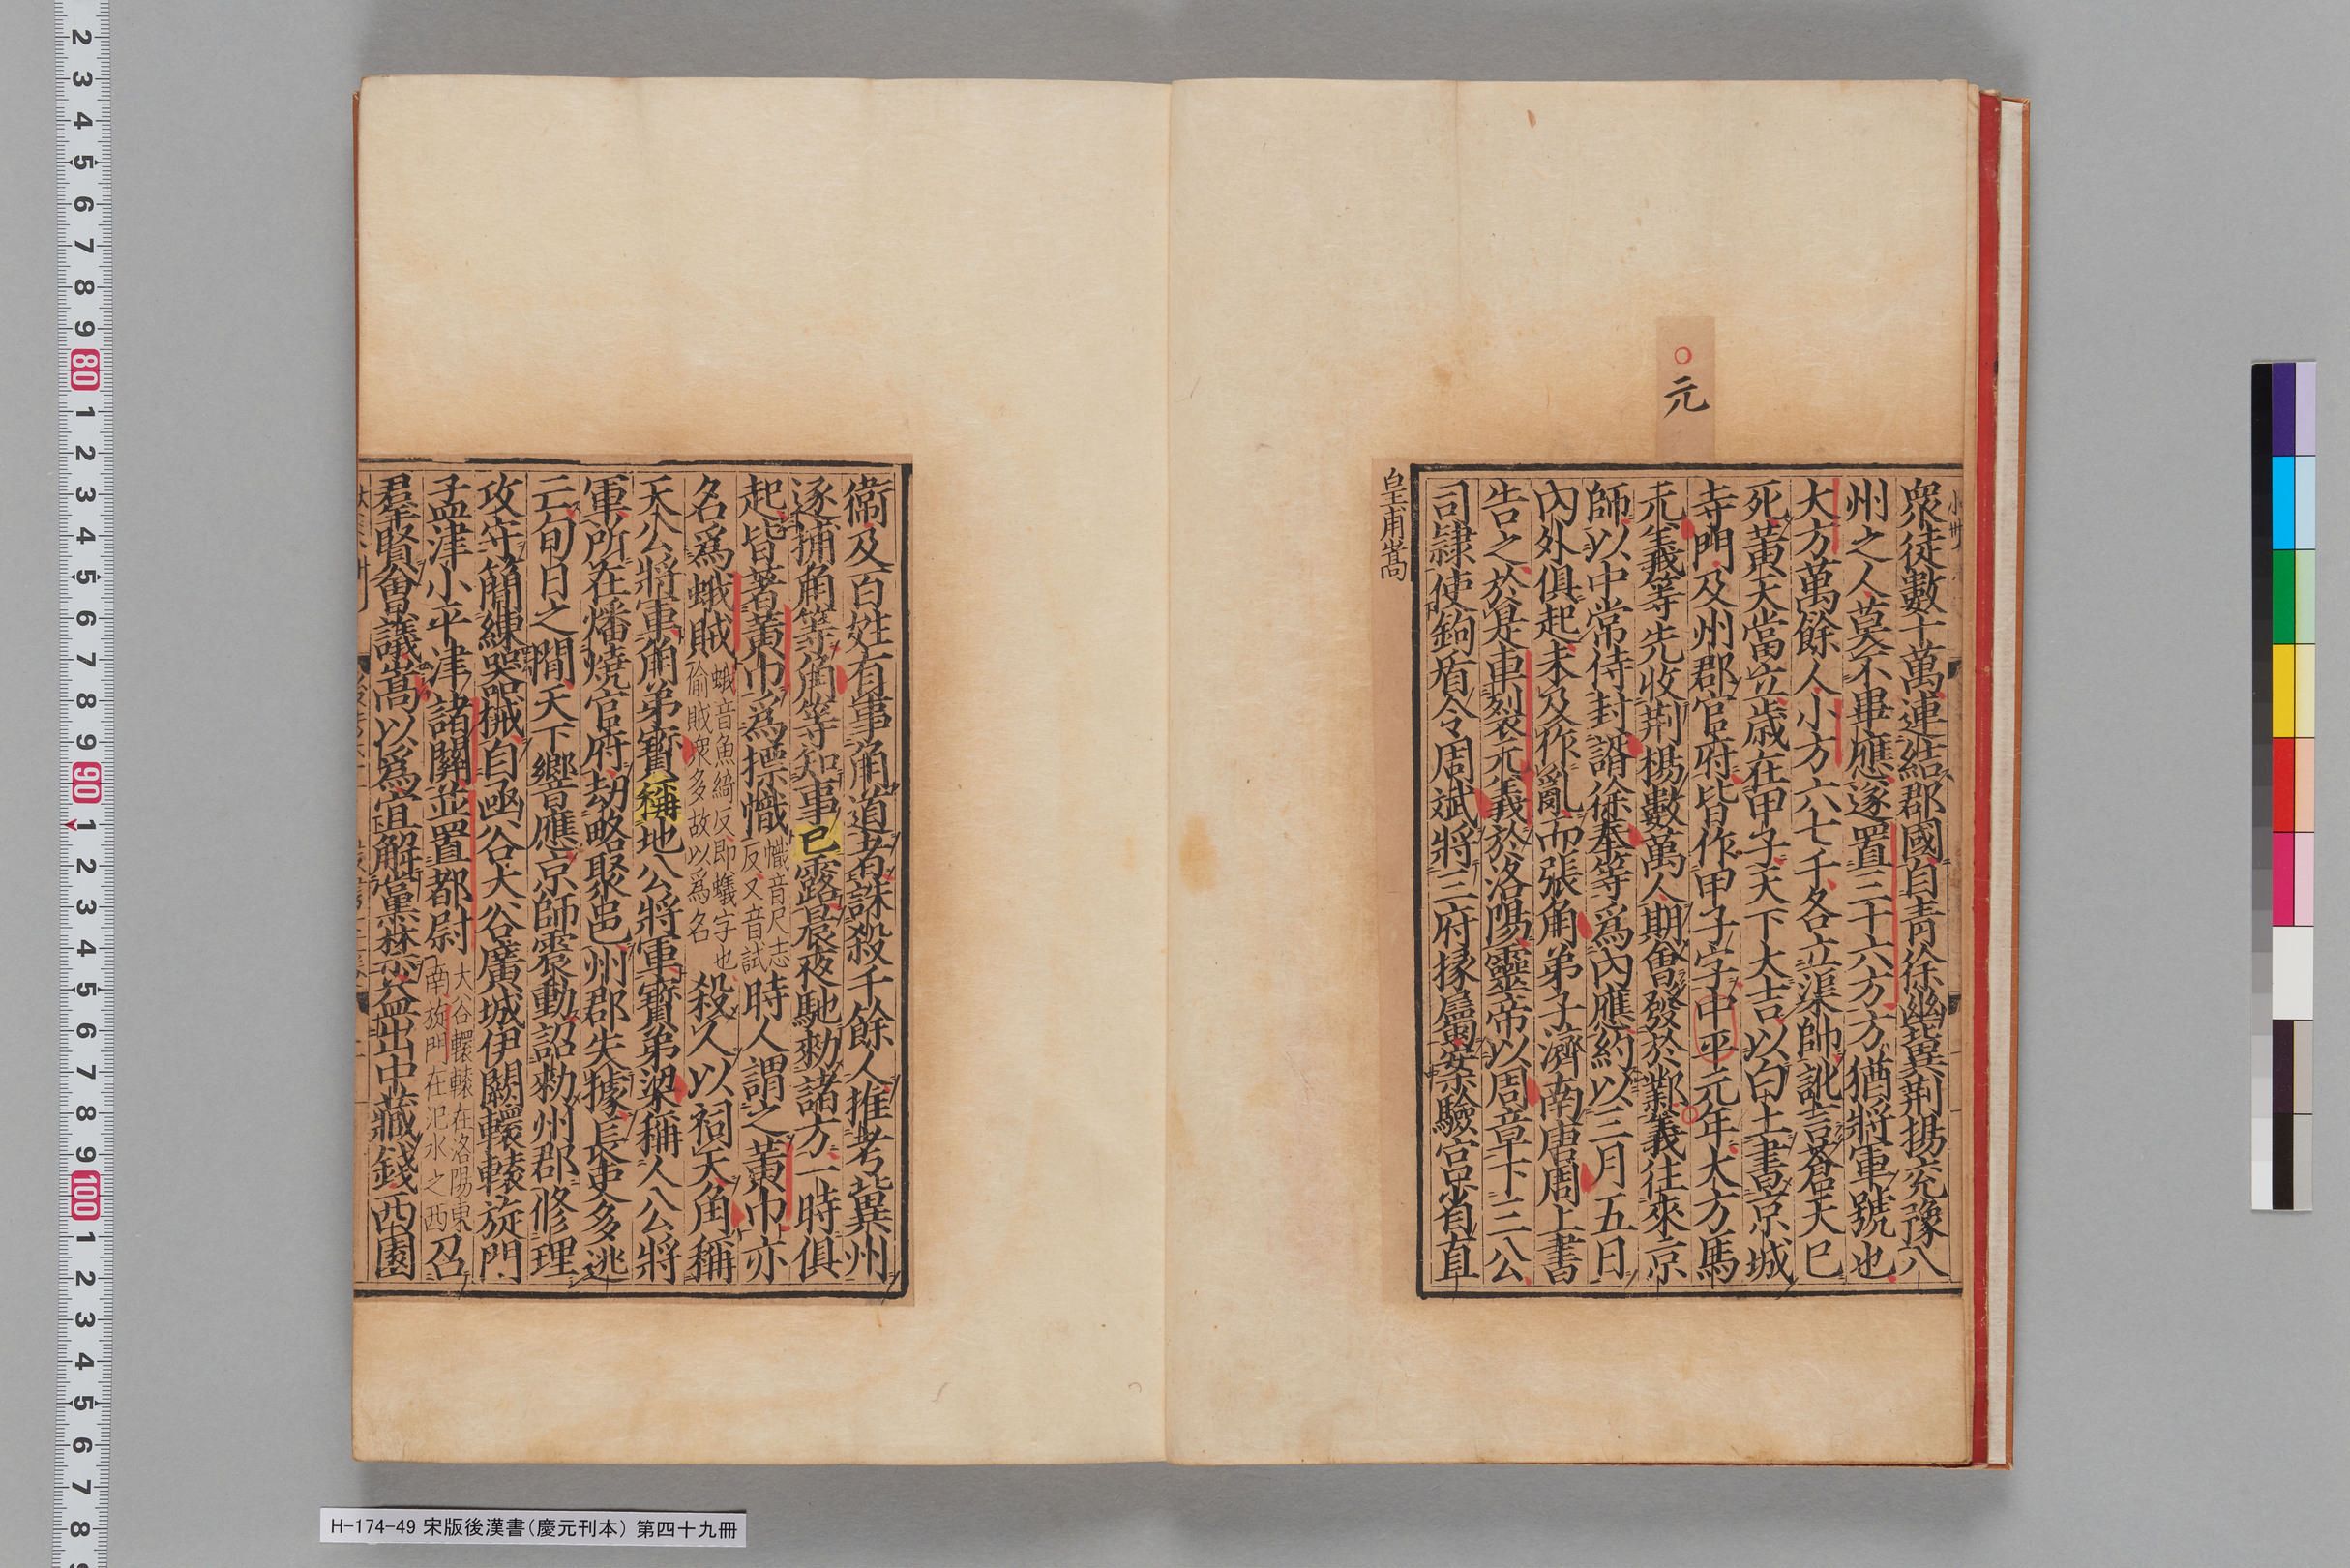 ○元
衆徒數十萬連結郡國自青徐幽冀荆揚兖豫八
州之人莫不畢應遂置三十六方方猶將軍號也
大方萬餘人小方六七千各立渠帥訛言蒼天已
死黃天當立歲在甲子天下大吉以白土書京城
寺門及州郡官府皆作甲子字中平元年大方馬
元義等先收荆楊數萬人期會發於鄴義往來京
師以中常侍封諝徐奉等爲內應約以三月五日
內外俱起未及作亂而張角弟子濟南唐周上書
告之於是車裂元義於洛陽靈帝以周章下三公
司隸使鉤盾令周斌將三府掾屬案驗宮省直
皇甫嵩
衞及百姓有事角道者誅殺千餘人推考冀州
逐捕角等角等知事已露晨夜馳勑諸方一時俱
起皆著黃巾爲摽幟幟音尺志反又音試時人謂之黃巾亦
名爲蛾賊蛾音魚綺反即蟻字也偷賊衆多故以爲名殺人以祠天角稱
天公將軍角弟寶稱地公將軍寶弟梁稱人公將
軍所在燔燒官府劫略聚邑州郡失據長吏多逃
亡旬日之閒天下嚮應京師震動詔勑州郡修理
攻守簡練器械自函谷大谷廣城伊闕轘轅旋門
孟津小平津諸關並置都尉大谷轘轅在洛陽東南旋門在汜水之西召
羣賢會議嵩以爲宜解黨禁益出中藏錢西園
H-174-49 宋版後漢書(慶元刊本) 第四十九冊